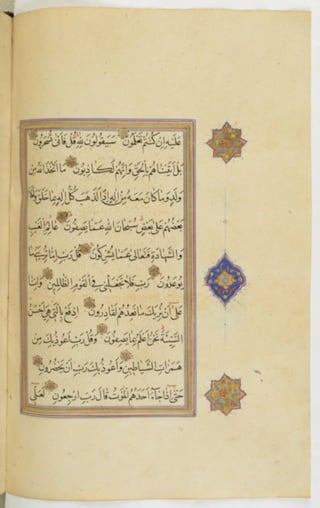 عليه ان كنتم تعلمون سيقولون لله قل فانى تسحرون
بل اتيناهم بالحق وانهم لكاذبون ما اتخذ الله من
ولد وما كان معه من اله اذا لذهب كل اله بما خلق ولعلا
بعضهم على بعض سبحان الله عما يصفون عالم الغيب
والشهادة فتعالى عما يشركون قل رب اما ترينى ما
يوعدون رب فلا تجعلنى فى القوم الظالمين وانا
على ان نريك ما نعدهم لقادرون ادفع بالتى هى احسن
السيئة نحن اعلم بما يصفون وقل رب اعوذ بك من
همزات الشياطين واعوذ بك رب ان يحضرون
حتى اذا جاء احدهم الموت قال رب ارجعون لعلى